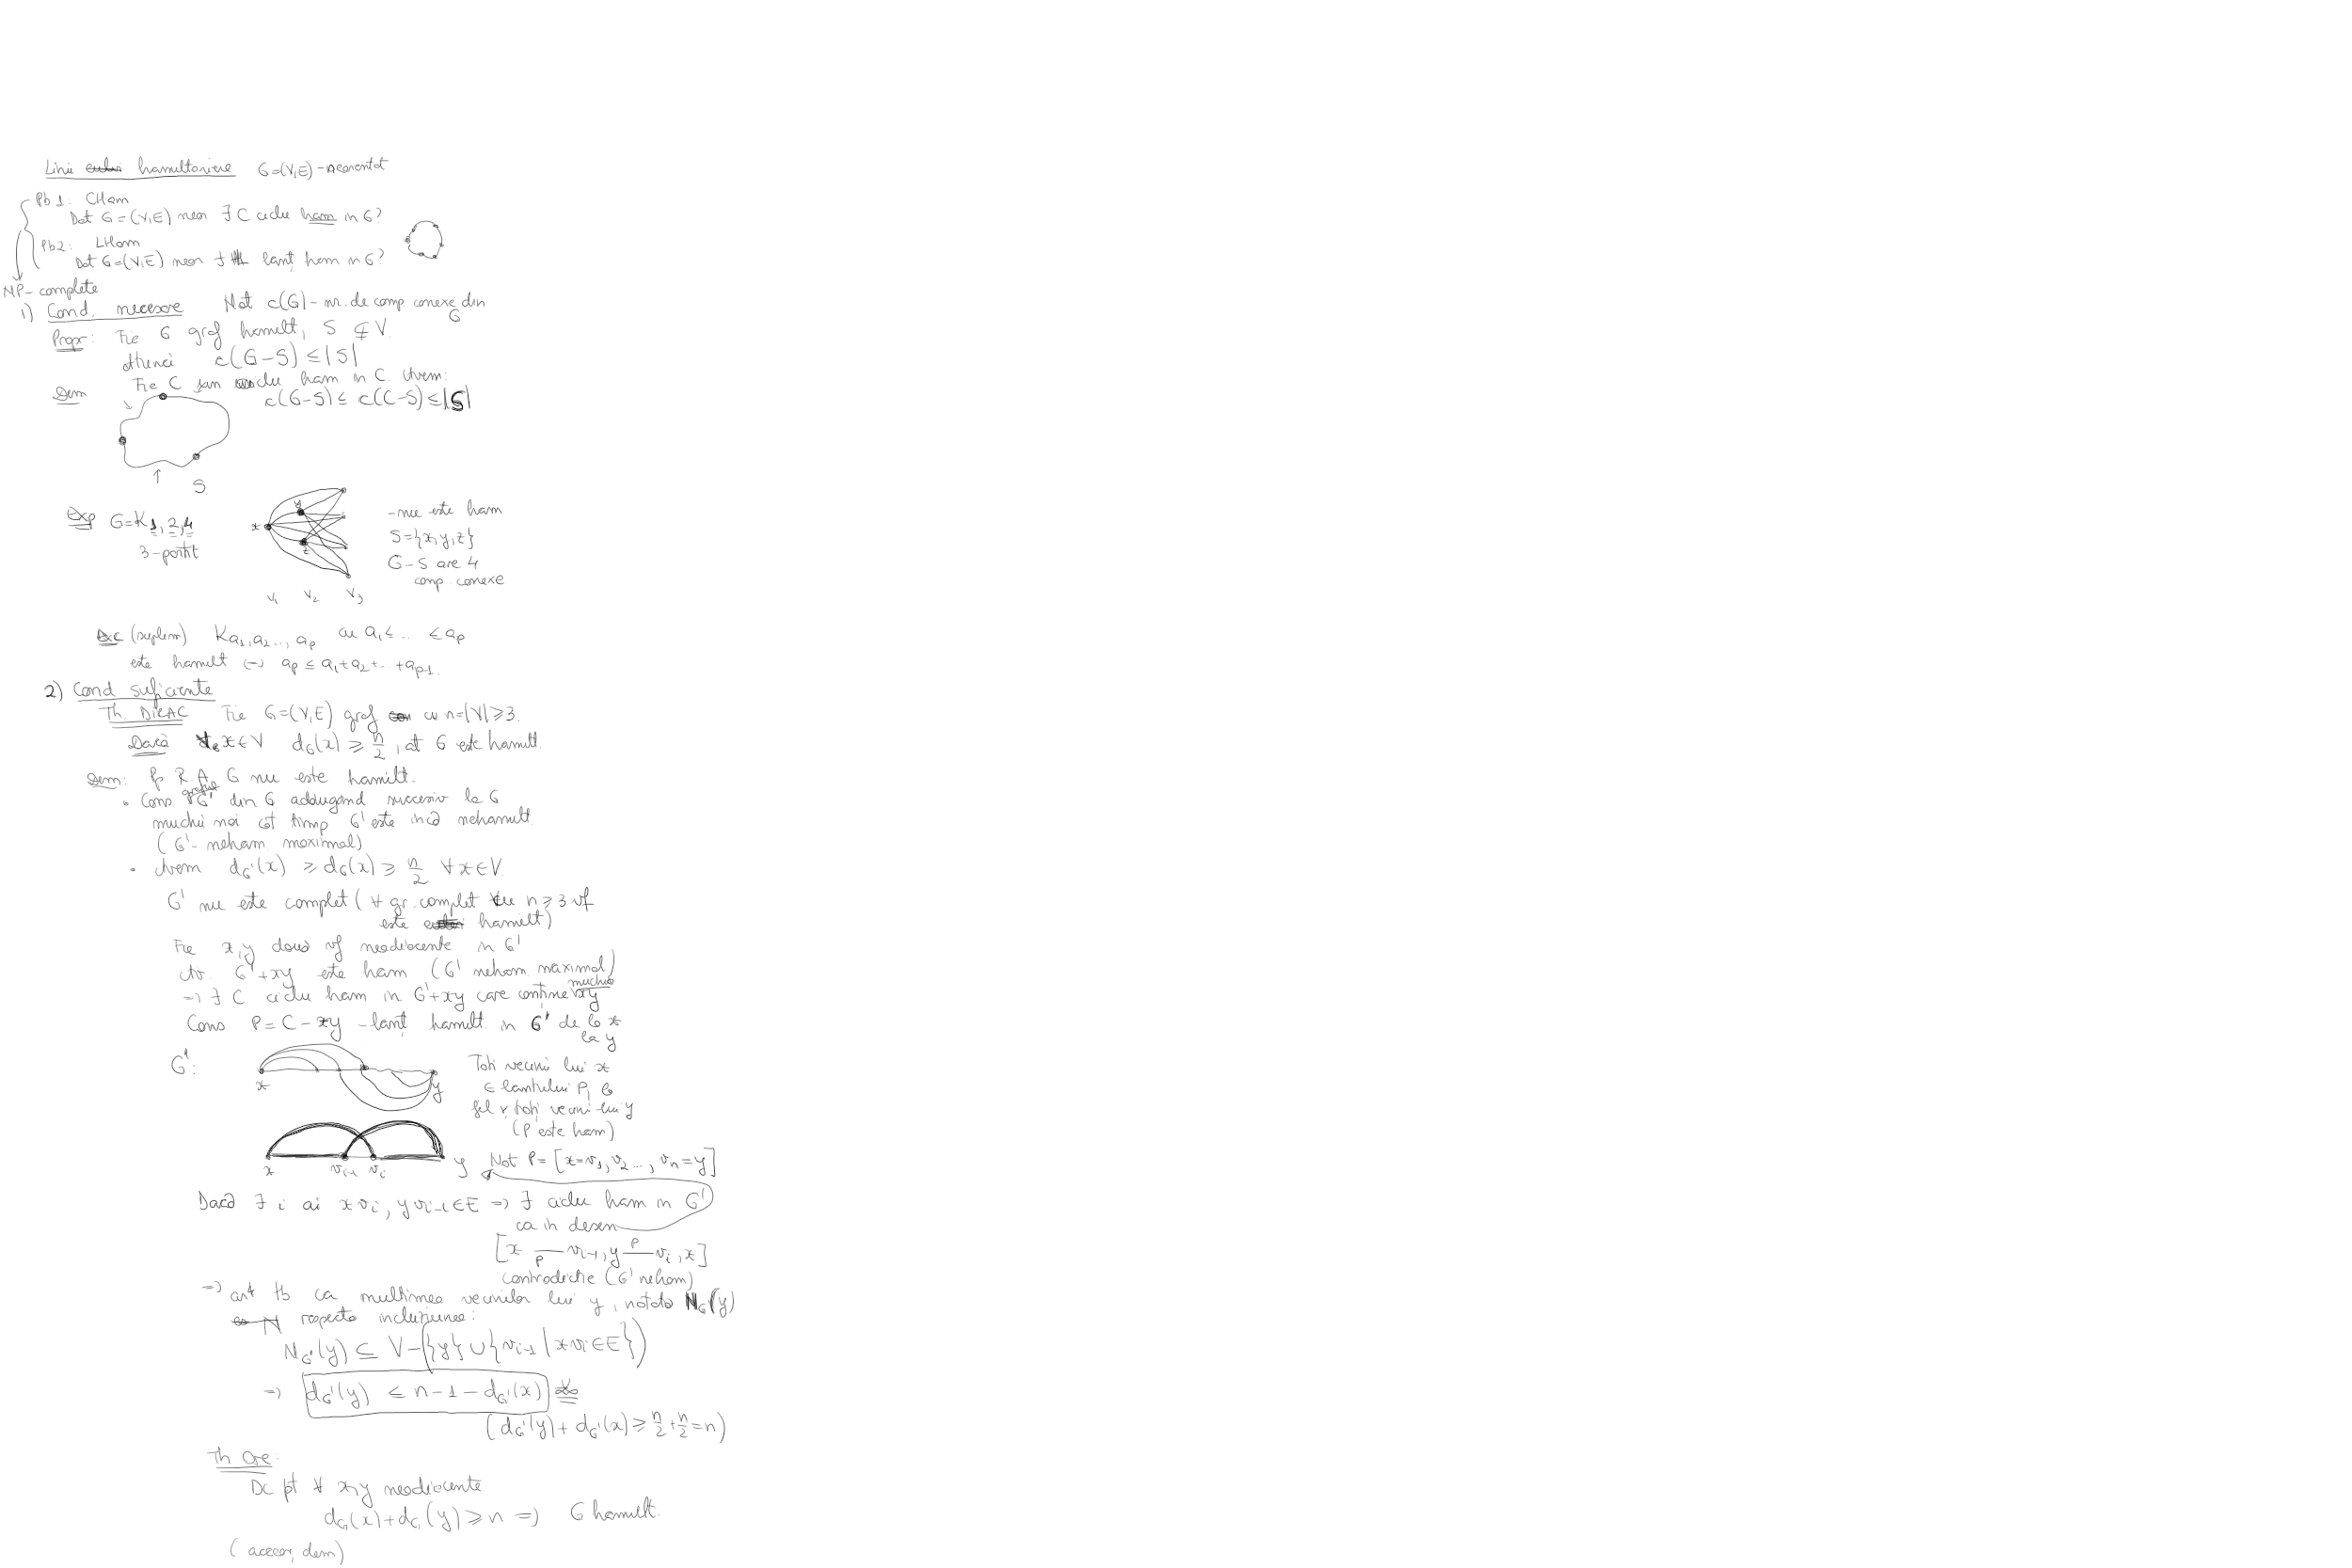 Linii hamiltoniene G=(V,E) - neorientat
Pb 1. CHam
Dat G=(V,E) neor ∃ C ciclu ham in G?
Pb2: LHam
Dat G=(V,E) neor ∃ lanț ham in G?
NP- complete
1) Cond. necesare Not c(G) - nr. de comp conexe din G
Prop: Fie G graf hamilt, S ⊊ V.
Atunci c(G-S) ≤ |S|
Dem Fie C un ciclu ham in C. Avem:
c(G-S) ≤ c(C-S) ≤ |S|
S
Exp G=K1,2,4
3-partit
x y z
V1 V2 V3
- nu este ham
S={x,y,z}
G-S are 4
comp. conexe
Exc (suplim) Ka1,a2..,ap cu a1≤.. ≤ap
este hamilt (=) ap ≤ a1+a2+..+ap-1.
2) Cond suficiente
Th. DIRAC Fie G=(V,E) graf cu n=|V|≥3.
Dacă ∀ x∈V dG(x) ≥ n/2, at G este hamilt.
Dem: Pp R.A. G nu este hamilt.
• Cons graful G' din G adăugand succesiv la G
muchii noi cât timp G' este incă nehamilt.
(G' - neham. maximal)
• Avem dG'(x) ≥ dG(x) ≥ n/2 ∀ x∈V.
G' nu este complet (∀ gr. complet cu n≥3 vf
este hamilt)
Fie x,y două vf neadiacente in G'
At. G'+xy este ham (G' neham. maximal)
=) ∃ C ciclu ham in G'+xy care conține muchia xy
Cons P = C - xy - lanț hamilt. in G' de la x
la y
G':
x y
Toti vecinii lui x
∈ lantului P, la
fel și toți vecinii lui y
(P este ham)
x vi-1 vi y
Not P=[x=v1, v2..., vn=y]
Dacă ∃ i ai xvi, yvi-1∈E =) ∃ ciclu ham in G'
ca in desen
[x P vi-1, y P vi, x]
contradictie (G' neham)
=) ca multimea vecinilor lui y, notata NG'(y)
respecta incluziunea:
NG'(y) ⊆ V-({y}∪{vi-1 | xvi∈E})
=) dG'(y) ≤ n-1-dG'(x)
(dG'(y)+dG'(x) ≥ n/2+n/2=n)
Th Ore:
Dc pt ∀ x,y neadiacente
dG(x)+dG(y) ≥ n =) G hamilt.
(aceeași dem)